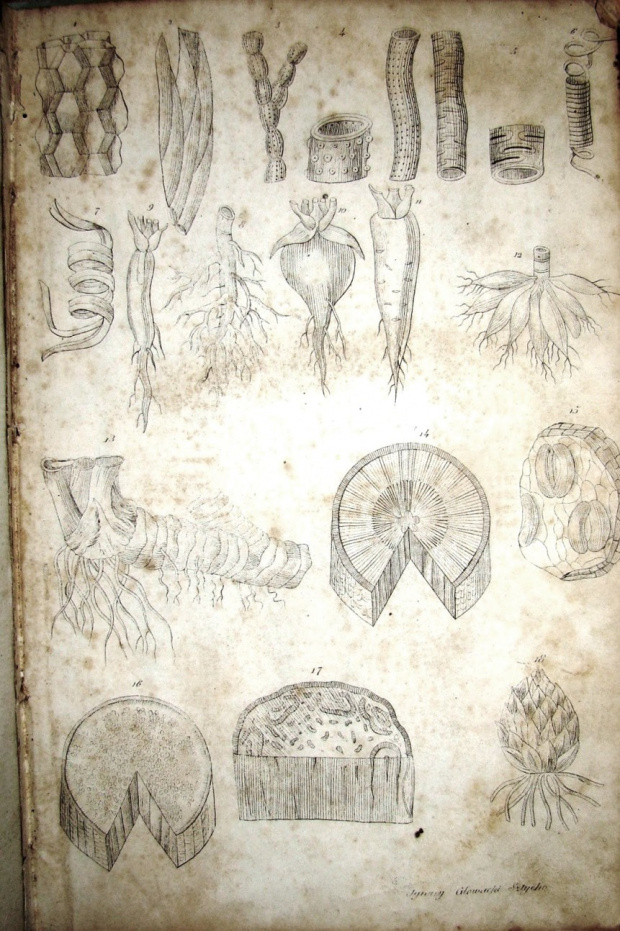 1 2 3 4 5 6
7 9 8 10 11 12
13 14 15
16 17 18
Ignacy Głowacki Sztycho